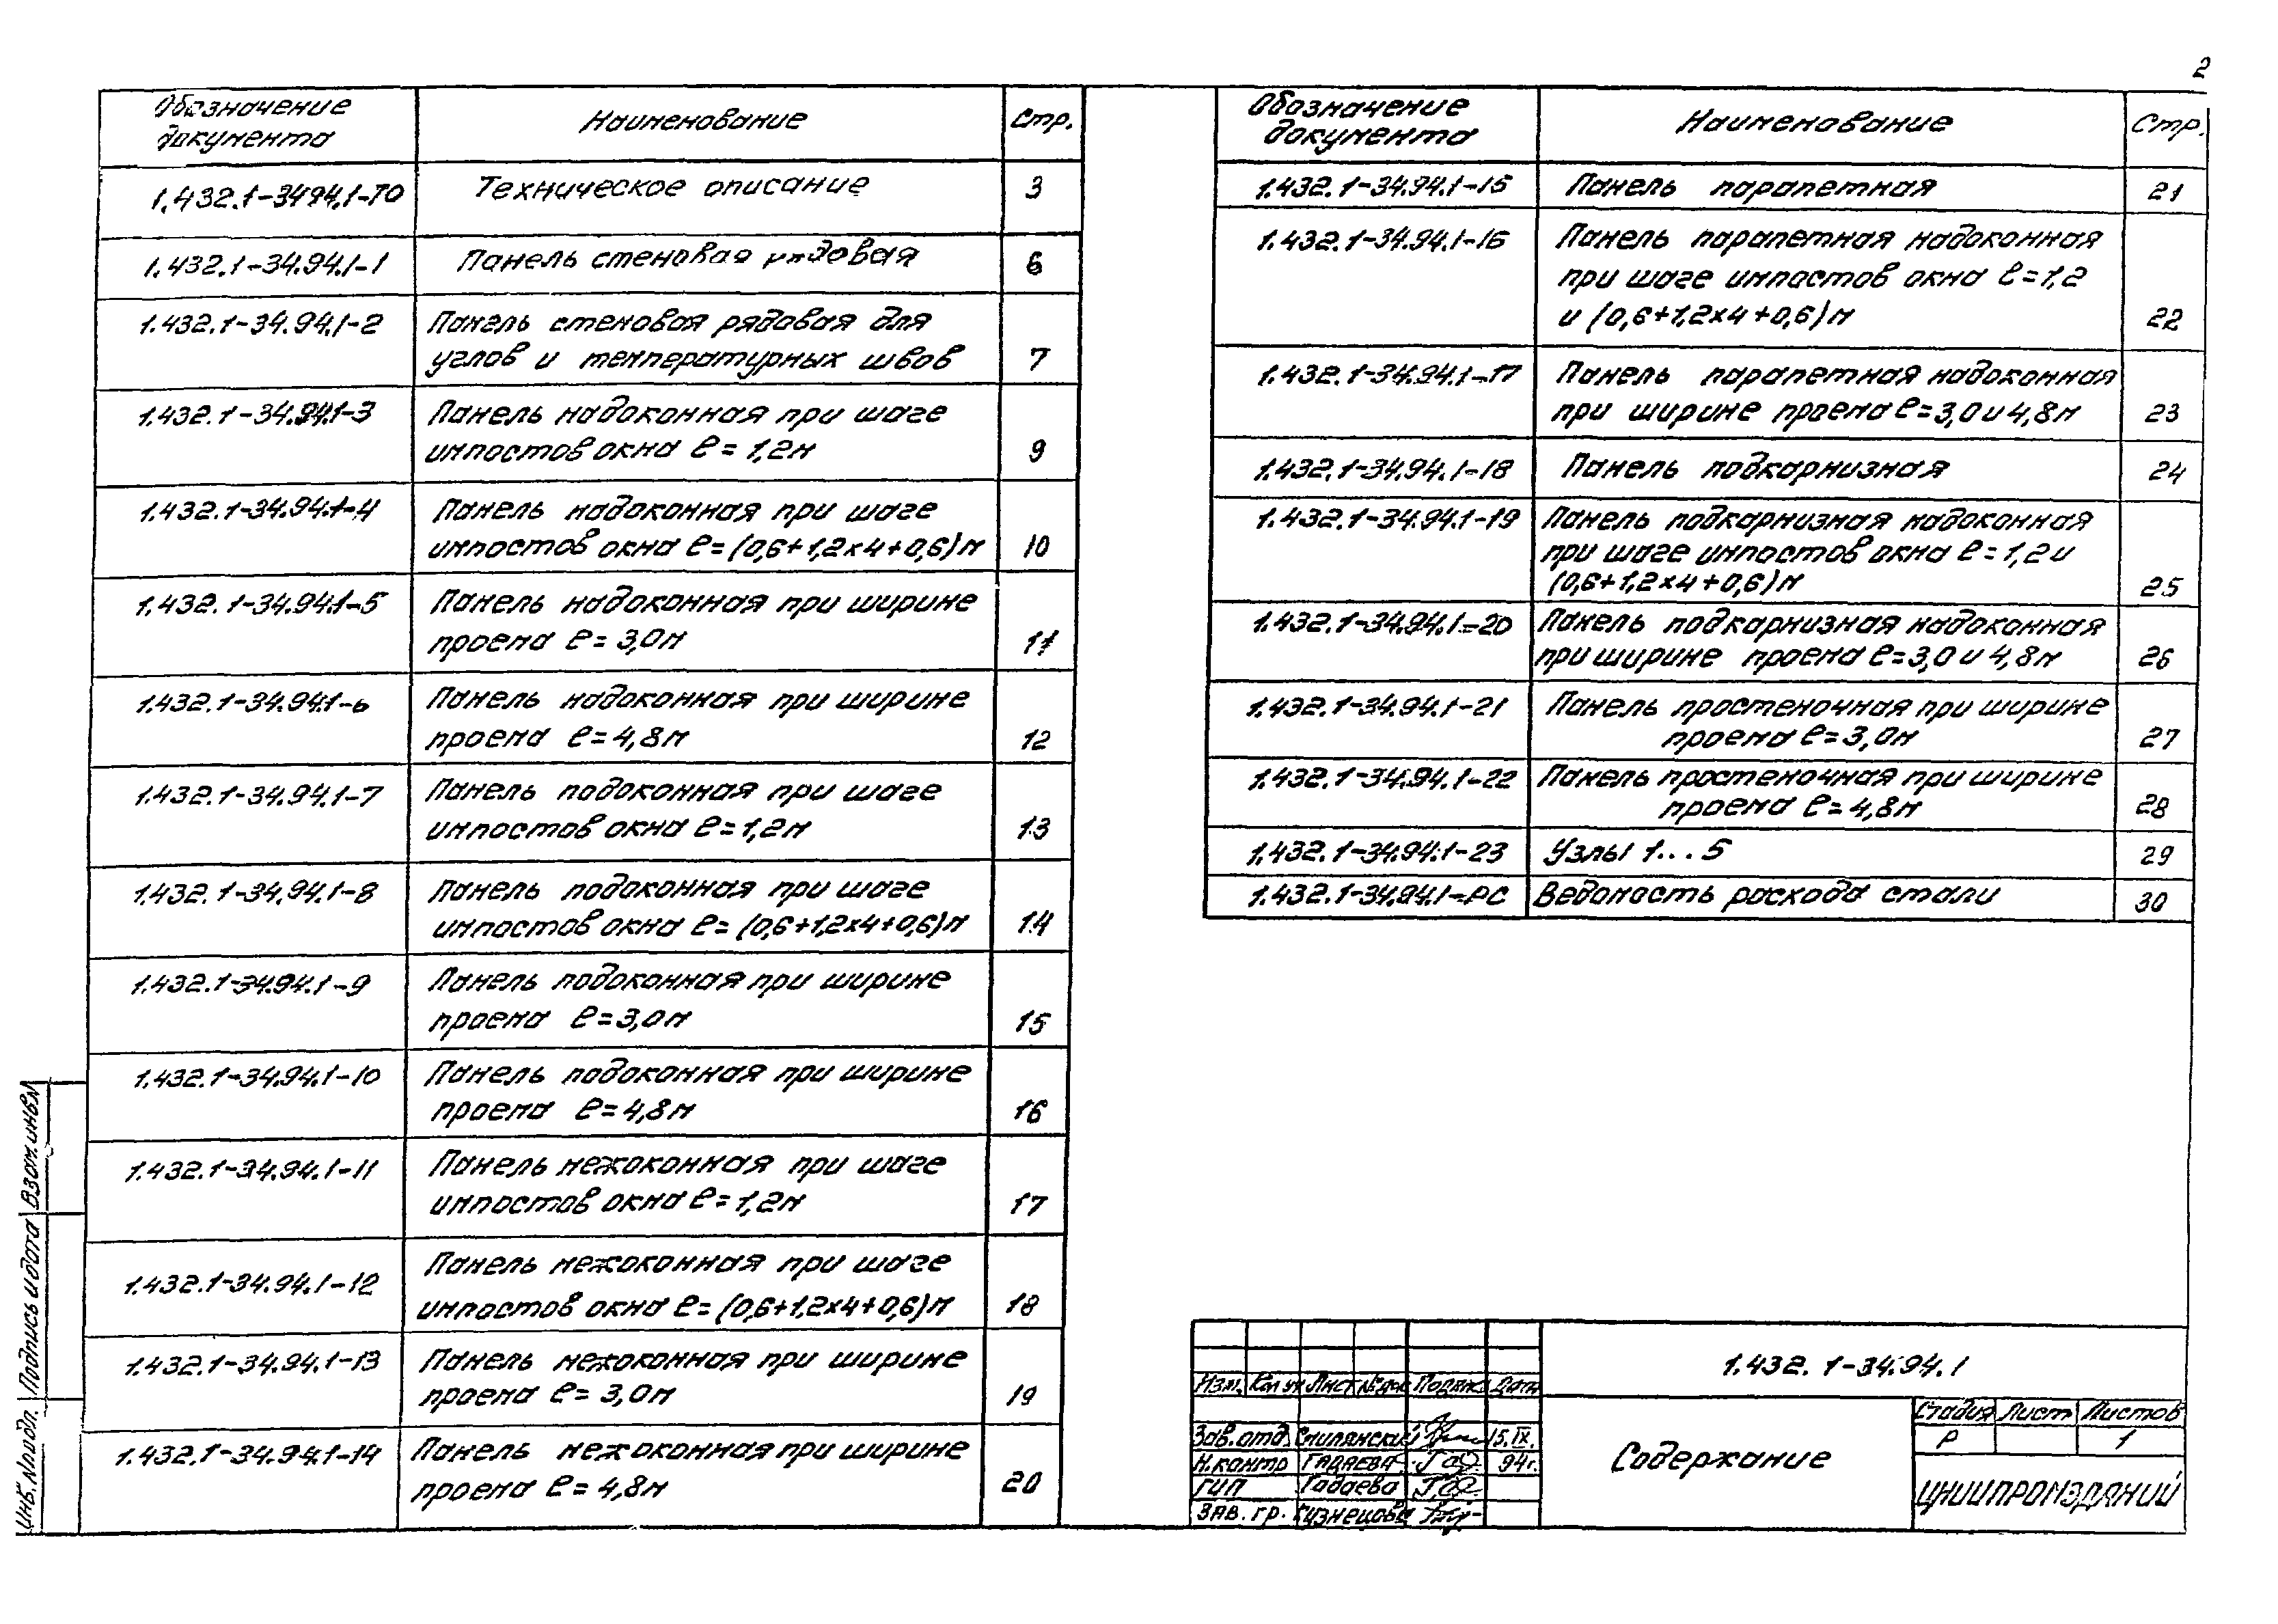 2
Обозначение
документа
Наименование
Стр.
1.432.1-34.94.1-ТО
Техническое описание
3
1.432.1-34.94.1-1
Панель стеновая рядовая
6
1.432.1-34.94.1-2
Панель стеновая рядовая для
углов и температурных швов
7
1.432.1-34.94.1-3
Панель надоконная при шаге
импостов окна ℓ= 1,2м
9
1.432.1-34.94.1-4
Панель надоконная при шаге
импостов окна ℓ=(0,6+1,2х4+0,6)м
10
1.432.1-34.94.1-5
Панель надоконная при ширине
проема ℓ= 3,0м
11
1.432.1-34.94.1-6
Панель надоконная при ширине
проема ℓ= 4,8м
12
1.432.1-34.94.1-7
Панель подоконная при шаге
импостов окна ℓ=1,2м
13
1.432.1-34.94.1-8
Панель подоконная при шаге
импостов окна ℓ= (0,6+1,2х4+0,6)м
14
1.432.1-34.94.1-9
Панель подоконная при ширине
проема ℓ=3,0м
15
1.432.1-34.94.1-10
Панель подоконная при ширине
проема ℓ=4,8м
16
1.432.1-34.94.1-11
Панель межоконная при шаге
импостов окна ℓ=1,2м
17
1.432.1-34.94.1-12
Панель межоконная при шаге
импостов окна ℓ=(0,6+1,2х4+0,6)м
18
1.432.1-34.94.1-13
Панель межоконная при ширине
проема ℓ= 3,0м
19
1.432.1-34.94.1-14
Панель межоконная при ширине
проема ℓ= 4,8м
20
Обозначение
документа
Наименование
Стр.
1.432.1-34.94.1-15
Панель парапетная
21
1.432.1-34.94.1-16
Панель парапетная надоконная
при шаге импостов окна ℓ=1,2
и (0,6+1,2х4+0,6)м
22
1.432.1-34.94.1-17
Панель парапетная надоконная
при ширине проема ℓ=3,0 и 4,8м
23
1.432.1-34.94.1-18
Панель подкарнизная
24
1.432.1-34.94.1-19
Панель подкарнизная надоконная
при шаге импостов окна ℓ=1,2 и
(0,6+1,2х4+0,6)м
25
1.432.1-34.94.1-20
Панель подкарнизная надоконная
при ширине проема ℓ=3,0 и 4,8м
26
1.432.1-34.94.1-21
Панель простеночная при ширине
проема ℓ=3,0м
27
1.432.1-34.94.1-22
Панель простеночная при ширине
проема ℓ=4,8м
28
1.432.1-34.94.1-23
Узлы 1...5
29
1.432.1-34.94.1-РС
Ведомость расхода стали
30
Инв.№подл.
Подпись и дата
Взам.инв.№
Изм. Кол.уч Лист №док Подпись Дата
Зав.отд. Смилянский 15.IX.
Н.контр Гадаева 94г.
ГИП Гадаева
Зав.гр. Кузнецова
1.432.1-34.94.1
Содержание
Стадия Лист Листов
Р 1
ЦНИИПРОМЗДАНИЙ